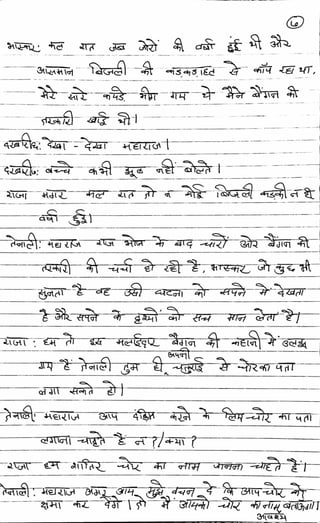 (७)
भास्कर: कल रात जब जोरों की वर्षा हुई थी और
आसमान बिजली की कडकडाहट से काँप रहा था,
मेरे सारे कपडे भीग गए थे मैंने बैंगन की
तरकारी खाई थी।
दरबारी१: देखा - देखा महाराज।
दरबारी२: बच्चे कभी झूठ नहीं बोलते।
राजा मगर कल रात तो न कोई बिजली कडकी न ही
वर्षा हुई।
तेनाली: महाराज राज भोज के बाद चारों ओर बैंगन की
तरकारी की चर्चा हो रही है, भास्कर जो कुछ भी
सुनता है वह उसी घटना को सपने में देखता
है और सपने के दृश्यों को सच मान लेता है।
राजा: हम तो इस मलाइदार बैंगन की कहानी में उलझ
गए हैं तेनाली तुम ही अपनी चतुराई से चोर का पता
लगा सकते हो।
तेनाली: महाराज आप दंडित करने के लिए चोर का पता
लगाना चाहते है न?/क्या?
राजा हम शातिर चोर का नाम जानना चाहते हैं।
तेनाली: महाराज अगर आप मुझे वचन दे कि आप चोर को
क्षमा कर देंगे। तो में आपको चोर का नाम बताऊंगा।
अवश्य